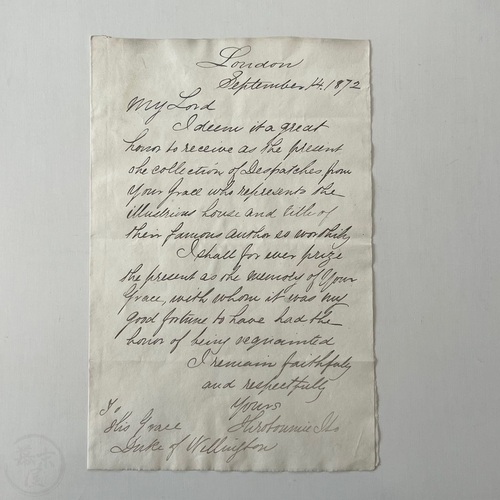 London
September 14. 1872
My Lord
I deem it a great
honor to receive as the present
the collection of Despatches from
Your Grace who represents the
illustrious house and title of
their famous author so worthily
I shall for ever prize
the present as the memory of Your
Grace, with whom it was my
good fortune to have had the
honor of being acquainted
I remain faithfully
and respectfully
Yours
To Hiroboumie Ito
His Grace
Duke of Wellington